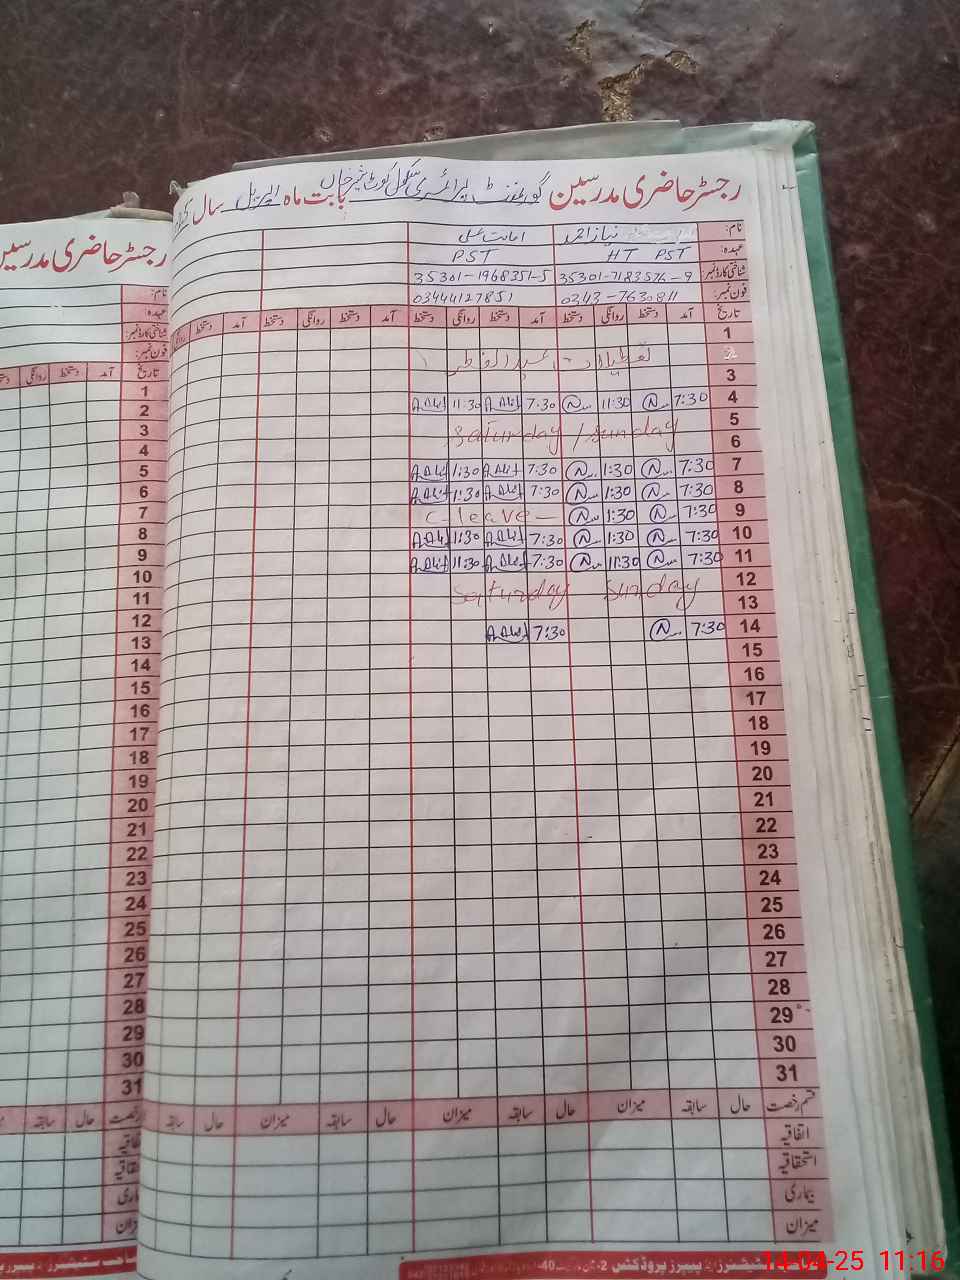 رجسٹر حاضری مدرسین گورنمنٹ پرائمری سکول کوٹ بابت ماہ اپریل سال
نام: نیاز احمد امانت علی
عہدہ: HT PST PST
شناختی کارڈ نمبر: 35301-7183576-9 35301-1968351-5
فون نمبر: 0343-7630811 03444127851
تاریخ آمد دستخط روانگی دستخط آمد دستخط روانگی دستخط آمد دستخط روانگی دستخط آمد دستخط روانگی
1
2 تعطیلات عید الفطر
3
4 7:30 11:30 7:30 11:30
5 Saturday / Sunday
6
7 7:30 1:30 7:30 1:30
8 7:30 1:30 7:30 1:30
9 7:30 1:30 C-leave
10 7:30 1:30 7:30 1:30
11 7:30 11:30 7:30 11:30
12 Saturday Sunday
13
14 7:30 7:30
15
16
17
18
19
20
21
22
23
24
25
26
27
28
29
30
31
قسم رخصت حال سابقہ میزان حال سابقہ میزان حال سابقہ میزان حال سابقہ
اتفاقیہ
استحقاقیہ
بیماری
میزان
رجسٹر حاضری مدرسین
نام:
عہدہ:
شناختی کارڈ نمبر:
فون نمبر:
تاریخ آمد دستخط روانگی
1
2
3
4
5
6
7
8
9
10
11
12
13
14
15
16
17
18
19
20
21
22
23
24
25
26
27
28
29
30
31
حال سابقہ
14-04-25 11:16